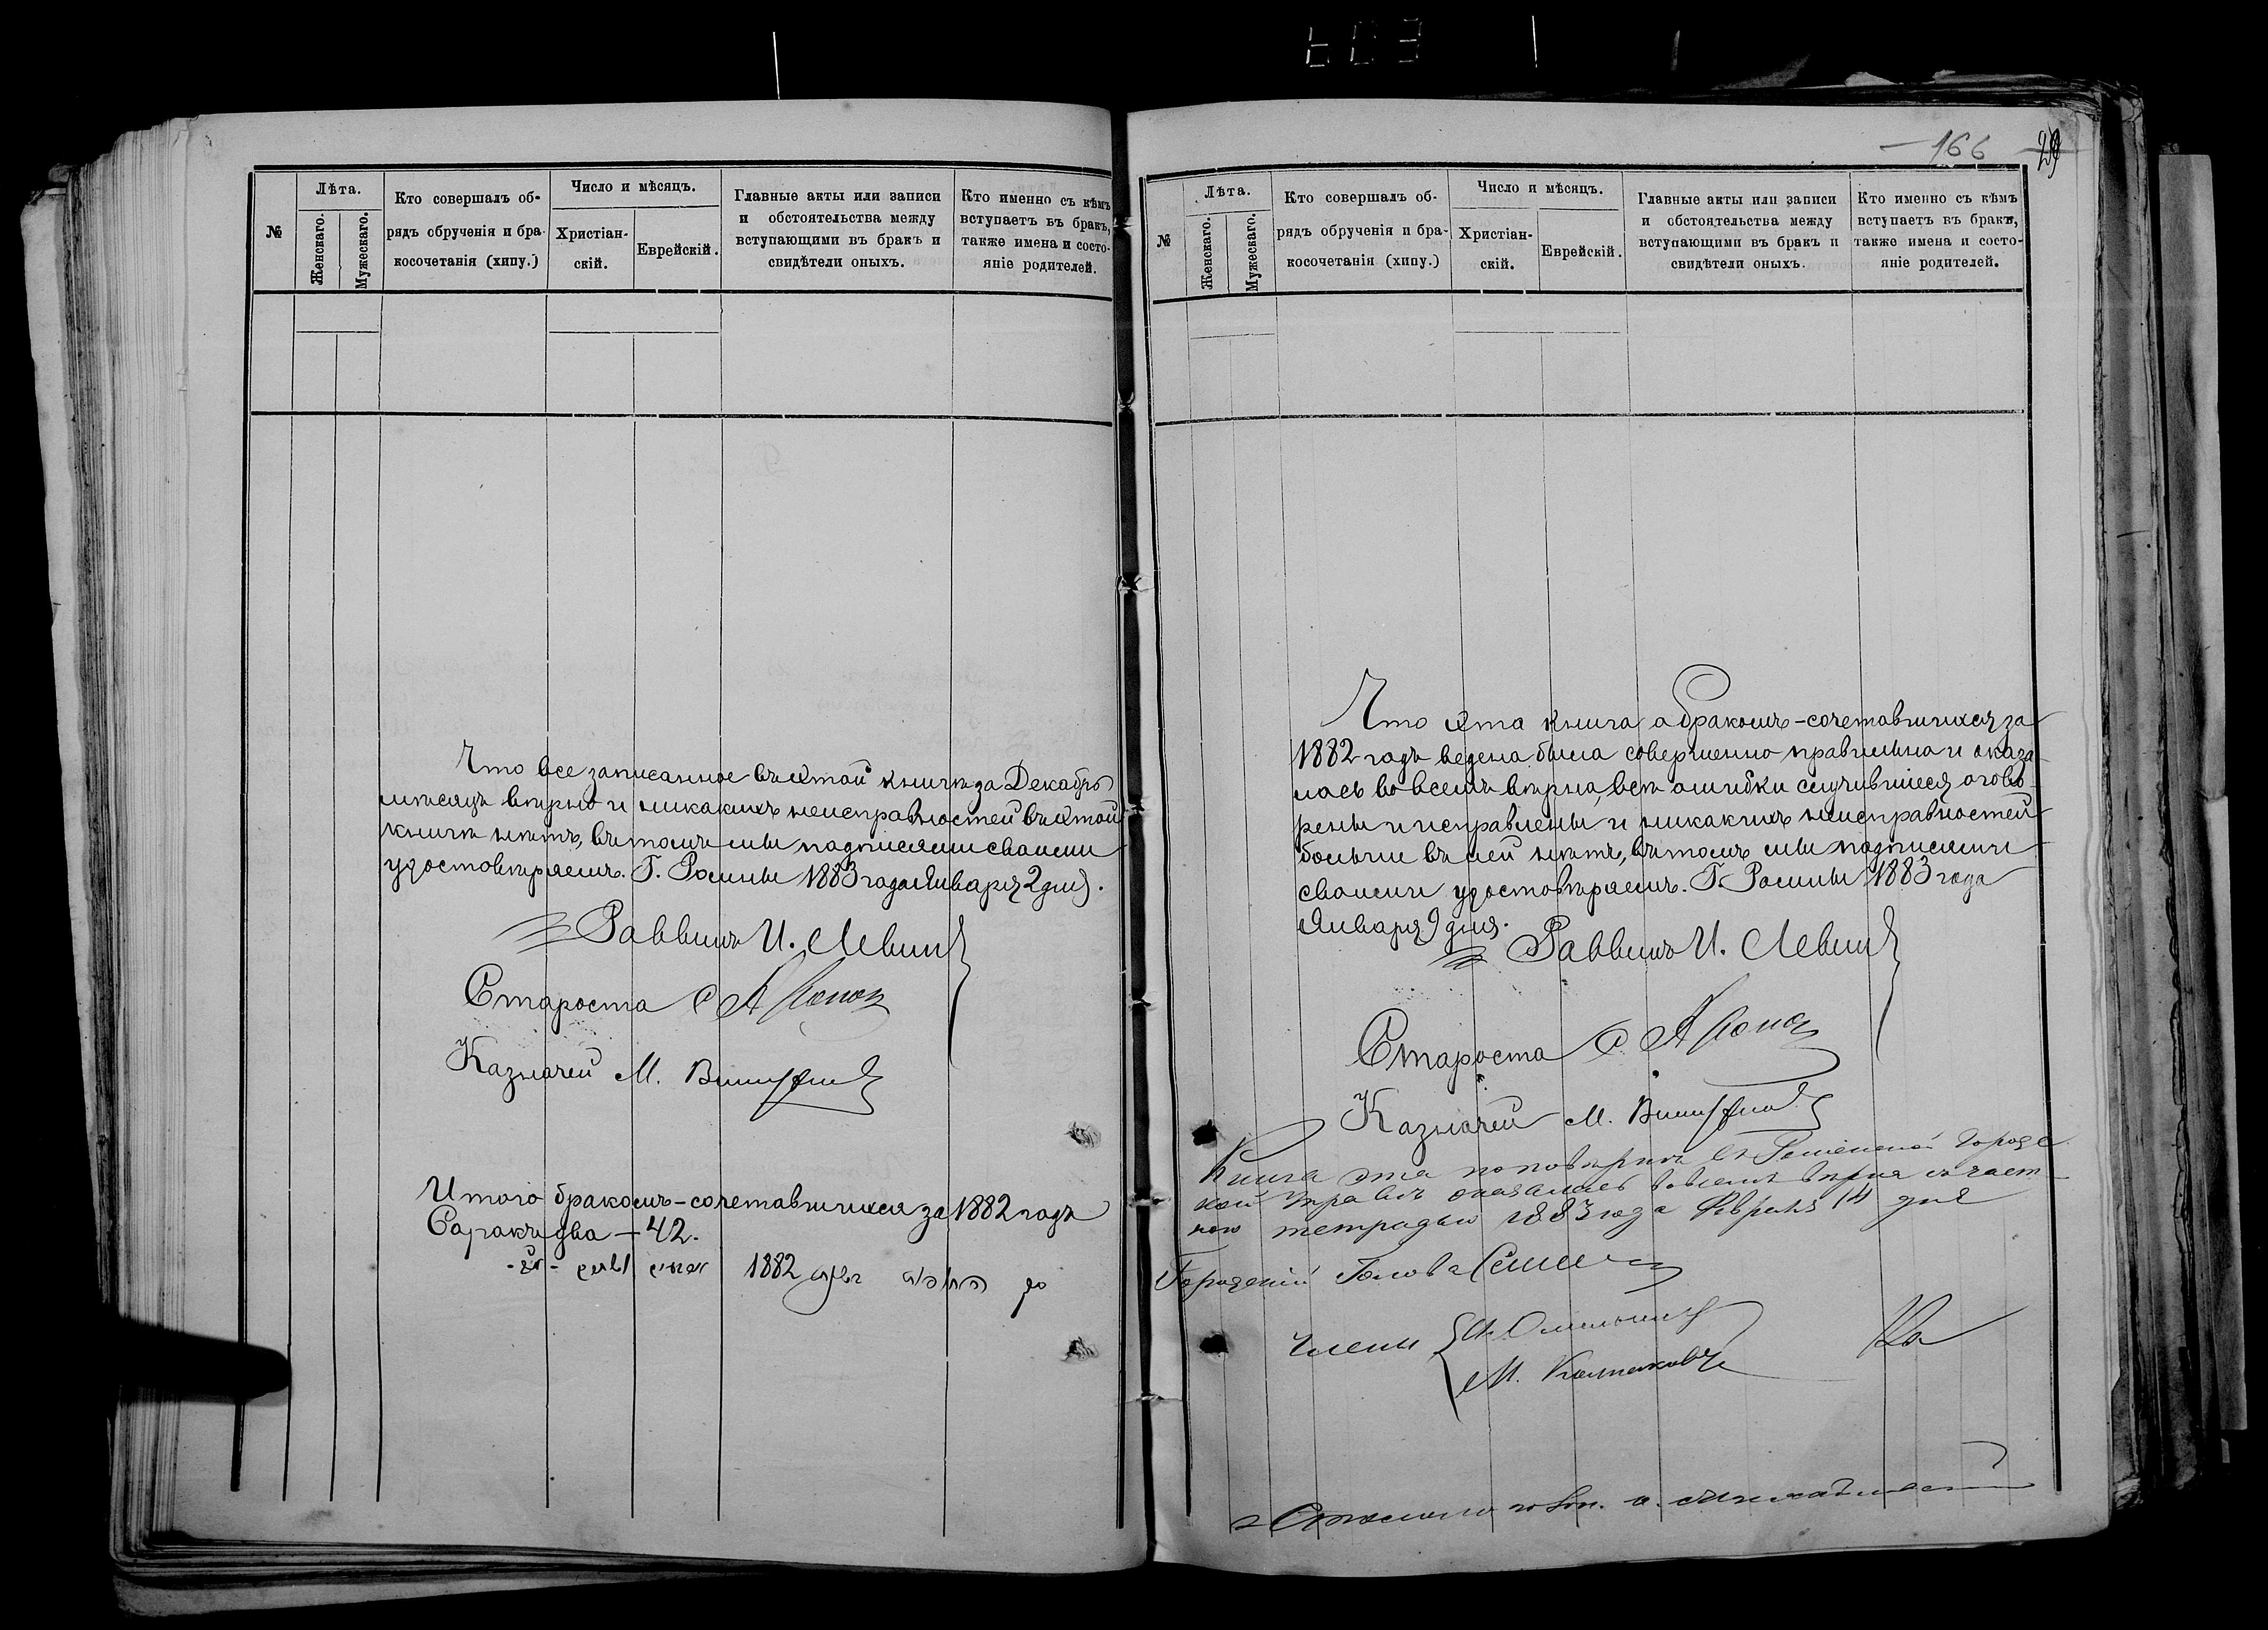 166
29
№
Лѣта.
Женскаго.
Мужескаго.
Кто совершалъ об-
рядъ обрученія и бра-
косочетанія (хипу.)
Число и мѣсяцъ.
Христіан-
скій.
Еврейскій.
Главные акты или записи
и обстоятельства между
вступающими въ бракъ и
свидѣтели оныхъ.
Кто именно съ кѣмъ
вступаетъ въ бракъ,
также имена и состо-
яніе родителей.
Что все записанное въ этой книгѣ за Декабрь
мѣсяцъ вѣрно и никакихъ неисправностей въ этой
книгѣ нѣтъ, въ томъ мы подписями своими
удостовѣряемъ. Г. Ромны 1883 года Января 2 дня.
Раввинъ И. Левин
Староста С А
Казначей М.
Итого бракомъ-сочетавшихся за 1882 годъ
Сорокъ два – 42.
1882
№
Лѣта.
Женскаго.
Мужескаго.
Кто совершалъ об-
рядъ обрученія и бра-
косочетанія (хипу.)
Число и мѣсяцъ.
Христіан-
скій.
Еврейскій.
Главные акты или записи
и обстоятельства между
вступающими въ бракъ и
свидѣтели оныхъ.
Кто именно съ кѣмъ
вступаетъ въ бракъ,
также имена и состо-
яніе родителей.
Что эта книга о бракомъ-сочетавшихся за
1882 годъ ведена была совершенно правильна и оказа-
лась во всемъ вѣрна, всѣ ошибки случившіеся огово-
рены и исправлены и никакихъ неисправностей
больше въ ней нѣтъ, въ томъ мы подписями
своими удостовѣряемъ. Г. Ромны 1883 года
Января 9 дня.
Раввинъ И. Левин
Староста С А
Казначей М.
Книга эта по повѣркѣ въ Роменской Городс-
кой Управѣ оказалась во всемъ вѣрна съ част-
ною тетрадью 1883 года Февраля 14 дня
Городской Голова
Члены
М.